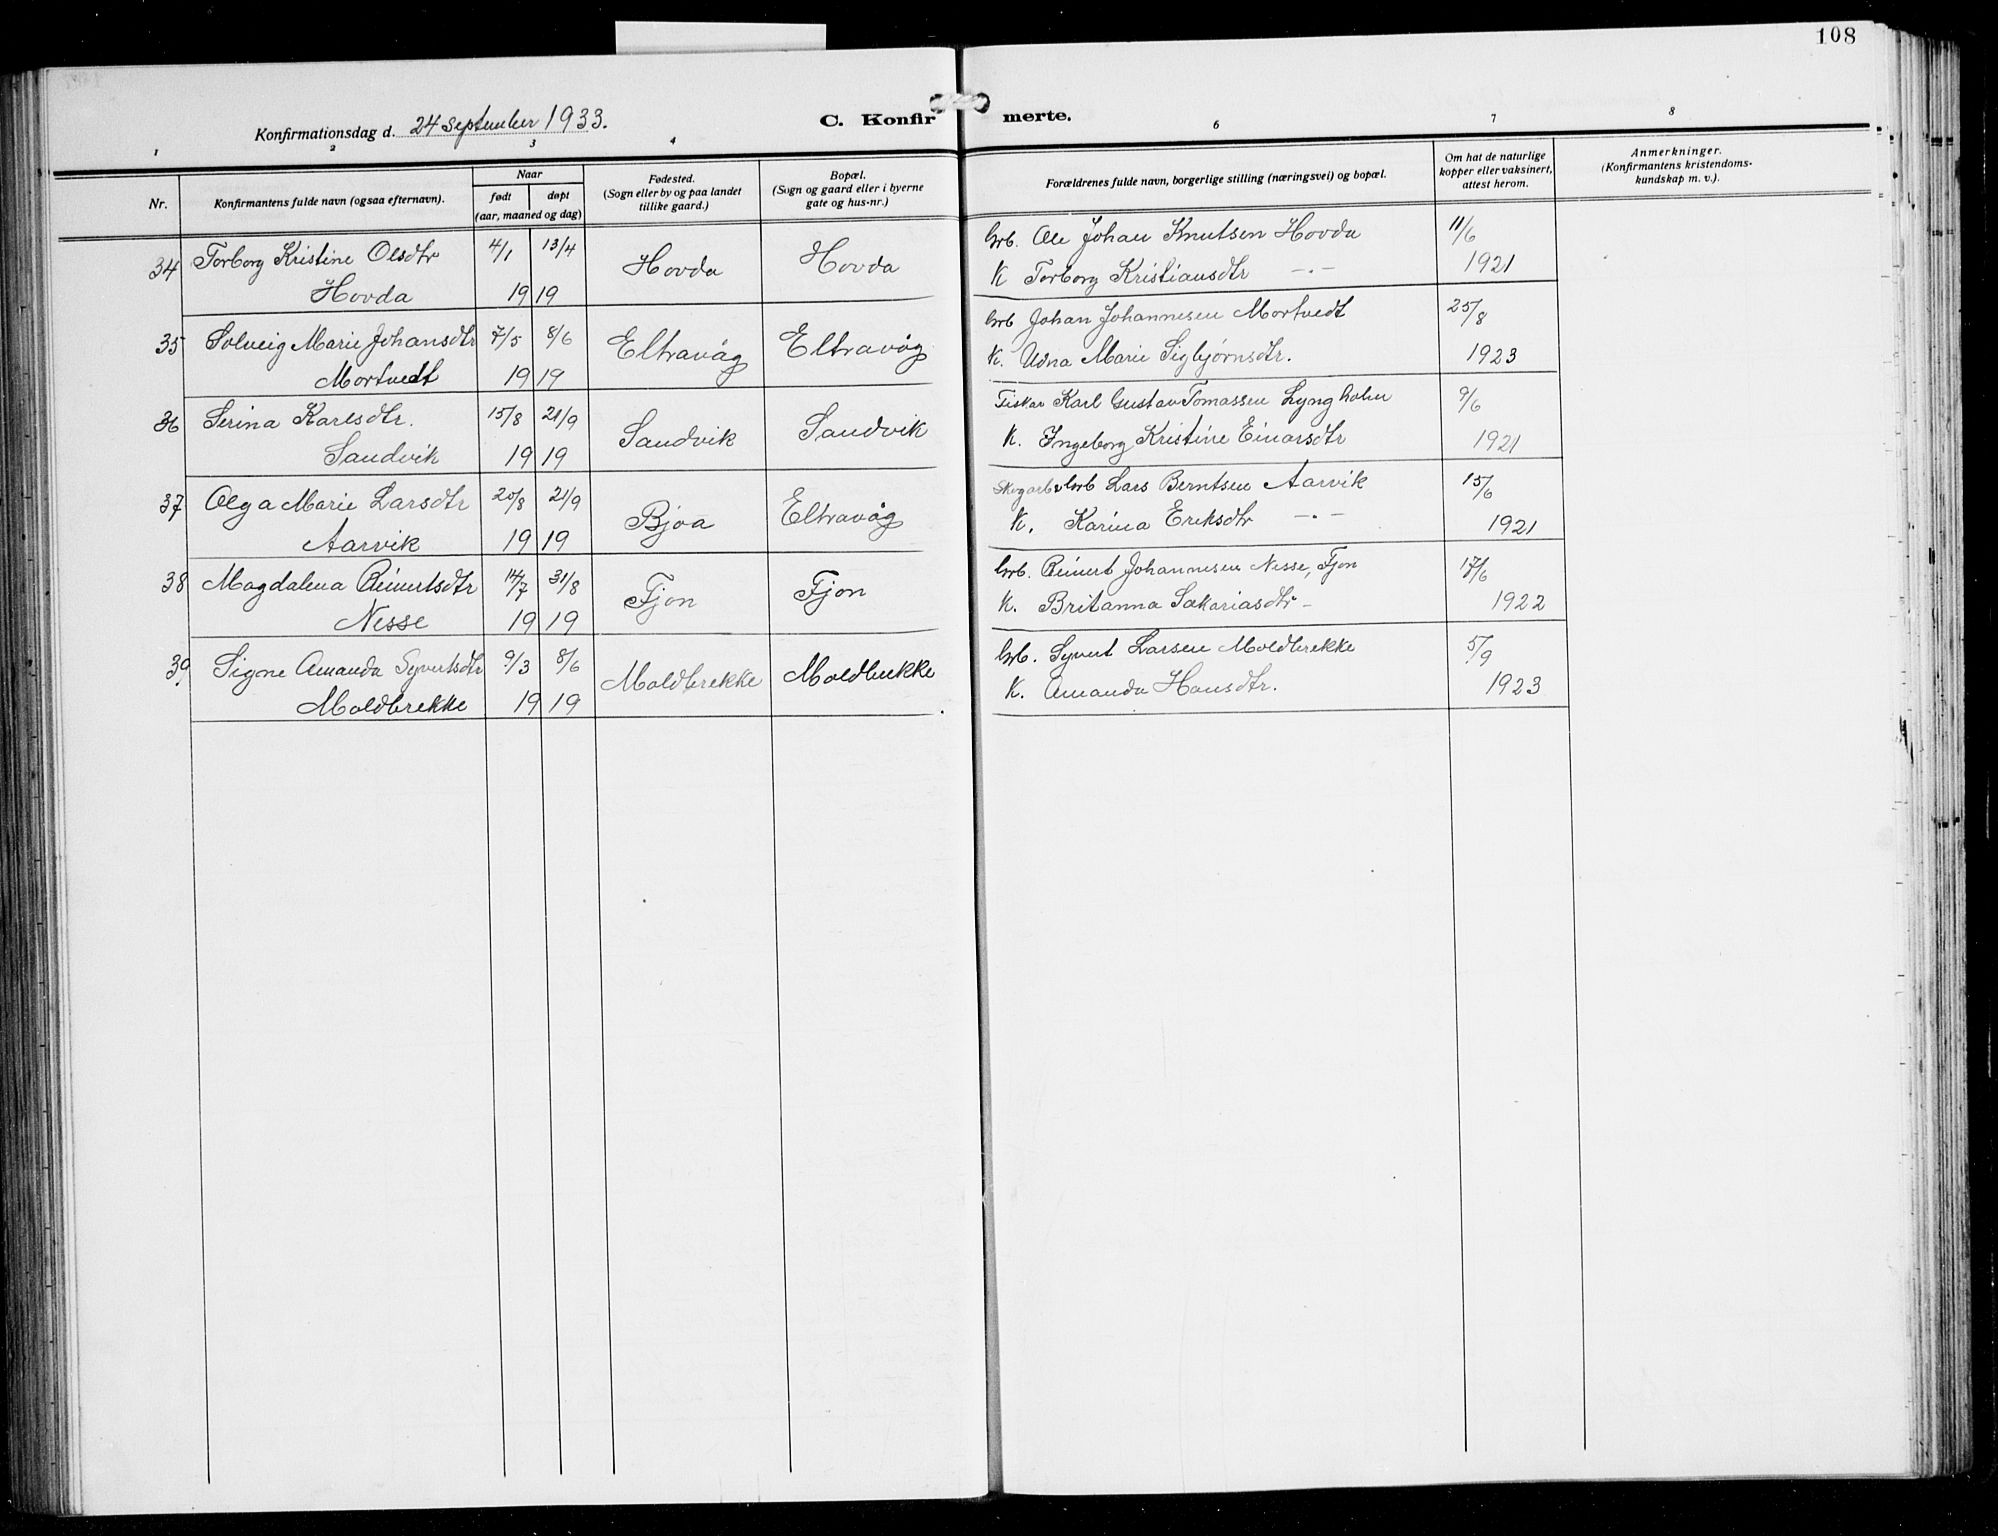 108
Konfirmationsdag d. 24 September 1933.
C. Konfirmerte.
1 2 3 4 6 7 8
Nr.
Konfirmantens fulde navn (ogsaa efternavn).
Naar
født døpt
(aar, maaned og dag)
Fødested.
(Sogn eller by og paa landet
tillike gaard.)
Bopæl.
(Sogn og gaard eller i byerne
gate og hus-nr.)
Forældrenes fulde navn, borgerlige stilling (næringsvei) og bopæl.
Om hat de naturlige
kopper eller vaksinert,
attest herom.
Anmerkninger.
(Konfirmantens kristendoms-
kundskap m. v.).
34 Torborg Kristine Olsdtr 4/1 13/4 Hovda Hovda Grb. Ole Johan Knutsen Hovda 11/6
Hovda 1919 K Torborg Kristiansdtr -"- 1921
35 Solveig Marie Johansdtr 7/5 8/6 Eltravåg Eltravåg Grb Johan Johannesen Mortvedt 25/8
Mortvedt 1919 K. Udna Marie Sigbjørnsdtr. 1923
36 Serina Karlsdtr. 15/8 21/9 Sandvik Sandvik Fisker Karl Gustav Tomassen Lyngholm 9/6
Sandvik 1919 K. Ingeborg Kristine Einarsdtr 1921
37 Olga Marie Larsdtr 20/8 21/9 Bjoa Eltravåg Lars Berntsen Aarvik 15/6
Aarvik 1919 K. Karina Eriksdtr -"- 1921
38 Magdalena Beinertsdtr 14/7 31/8 Fjon Fjon Grb. Beinert Johannesen Nesse, Fjon 17/6
Nesse 1919 K. Britanna Sakariasdtr - 1922
39. Signe Amanda Syvertsdtr 9/3 8/6 Moldbrekke Moldbrekke Grb. Syvert Larsen Moldbrekke 5/9
Moldbrekke 1919 K. Amanda Hansdtr. 1923